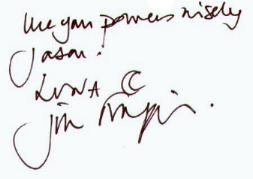 Use your powers wisely
Jason!
LUNA C
Jim